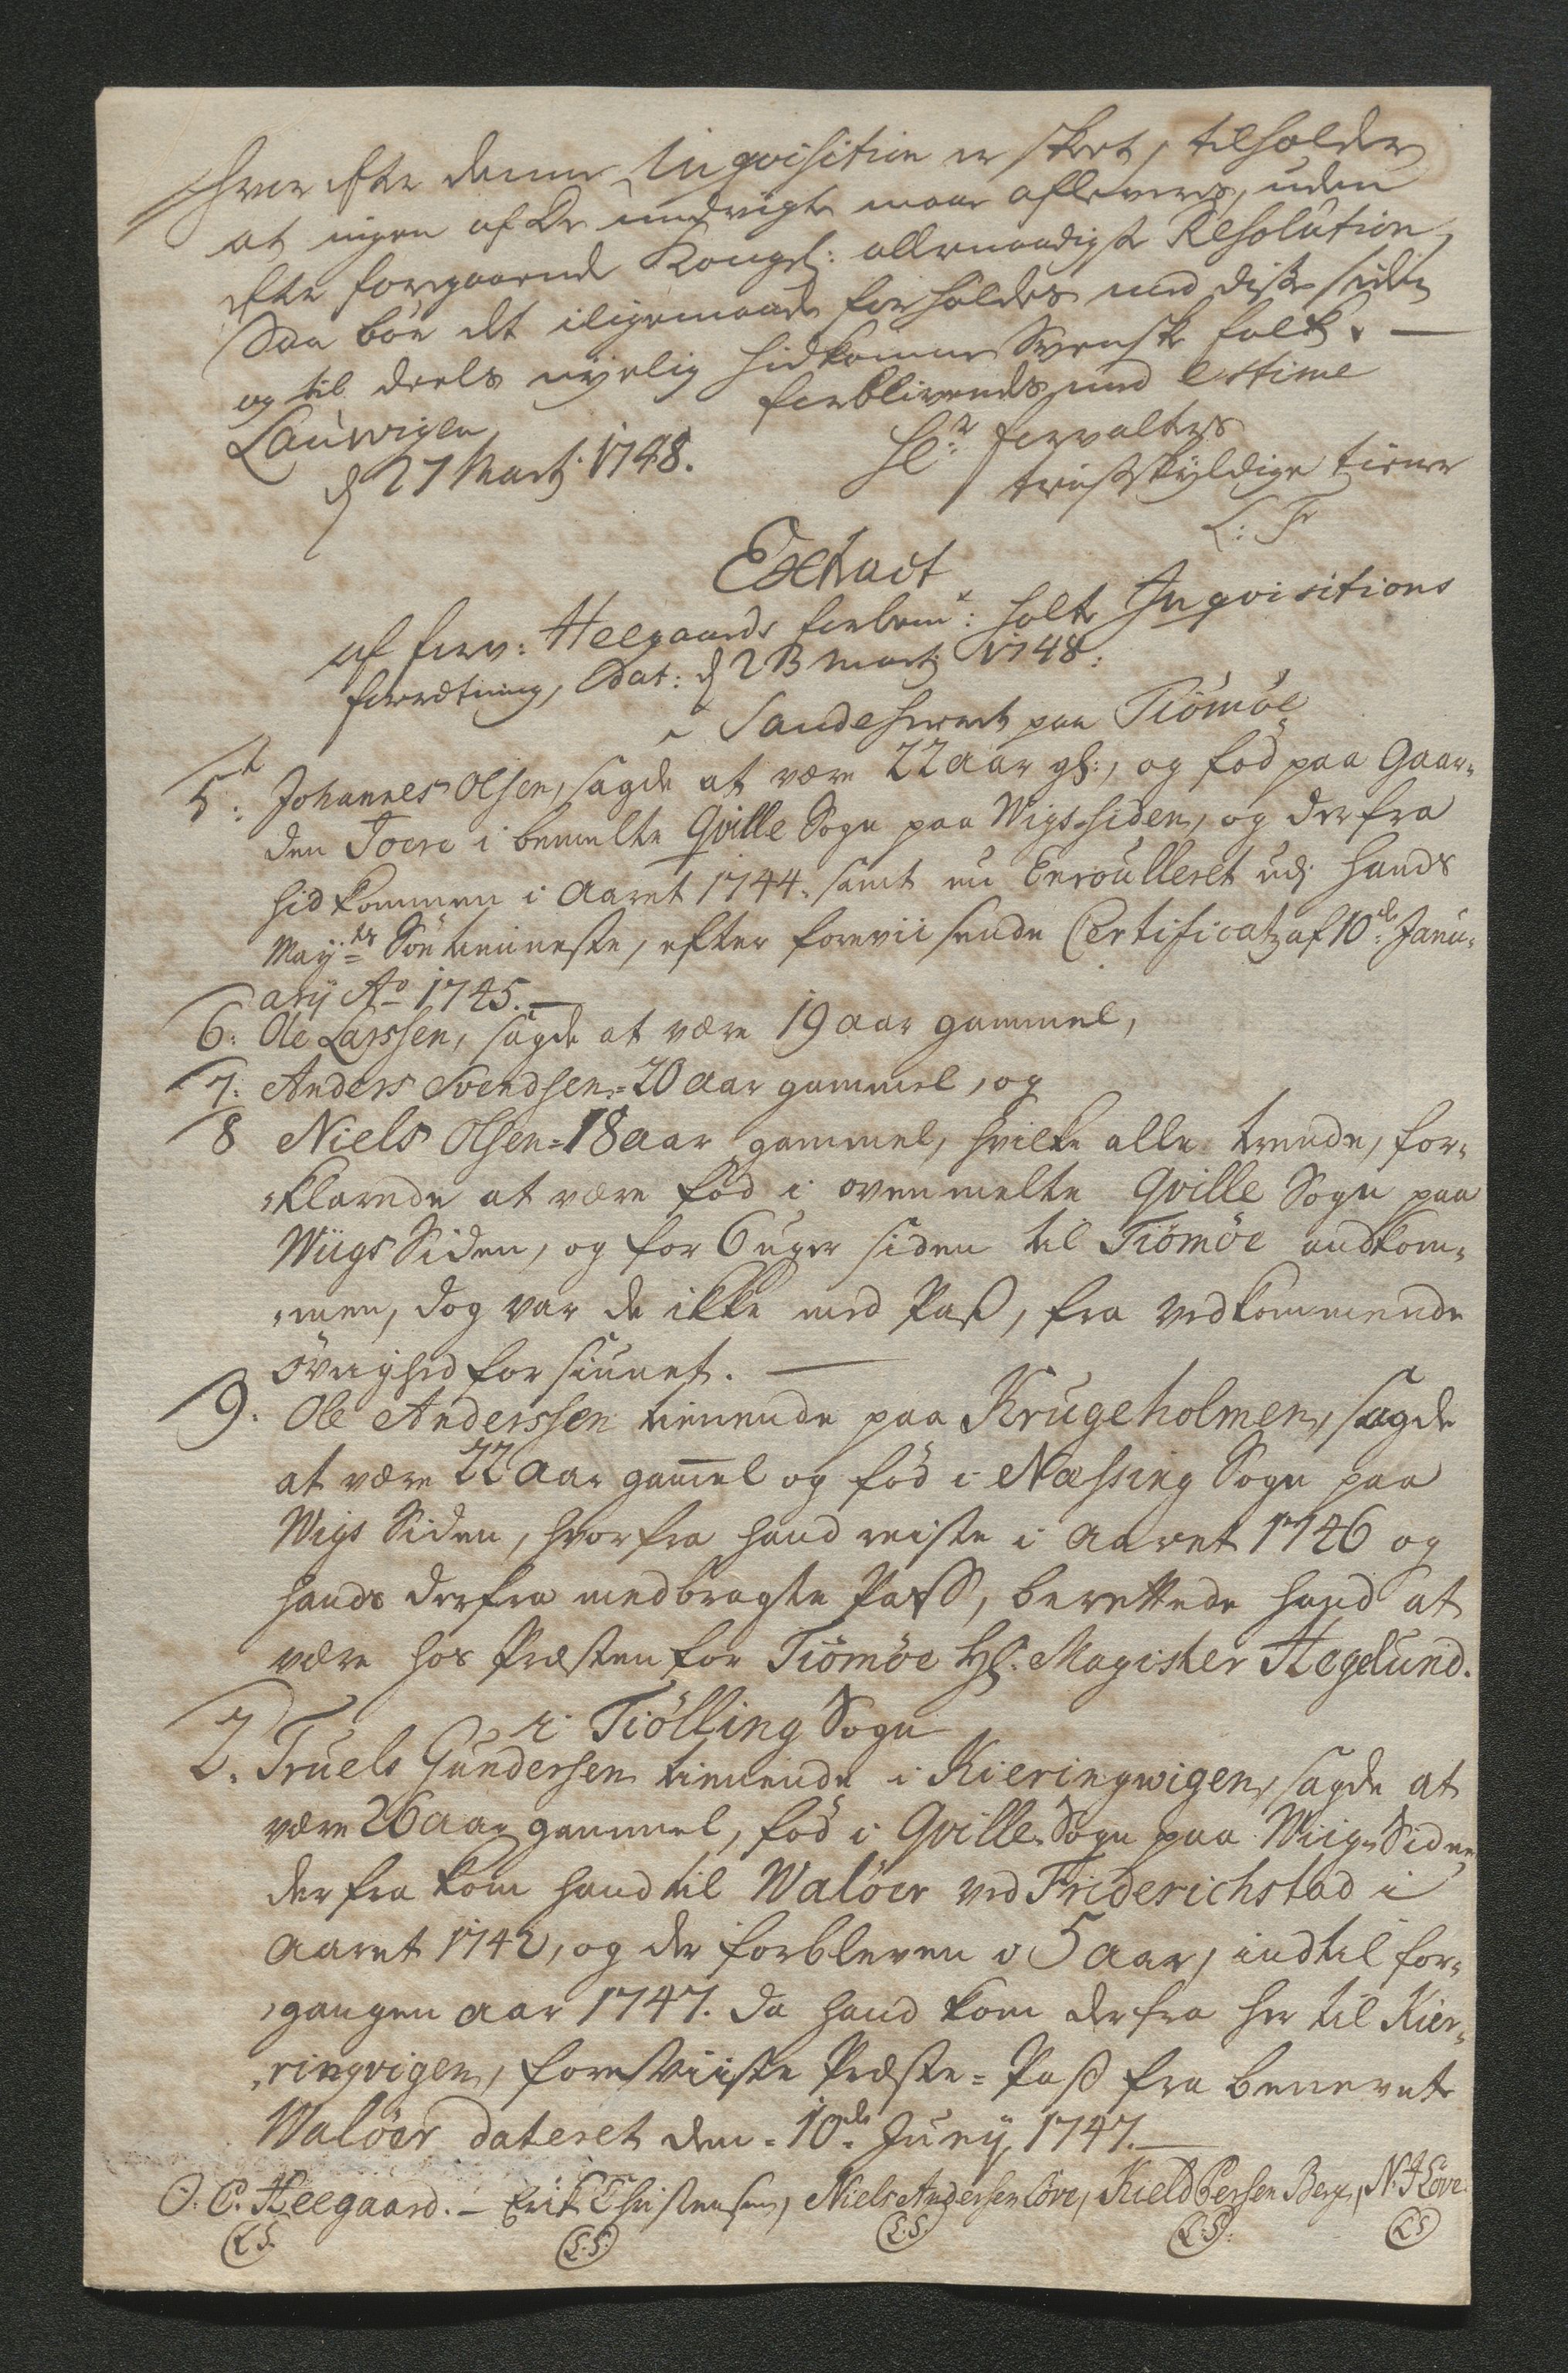 hvor efter denne Inqvisition er skeet, tilholder
at ingen af de indvigte maae afleveres, uden
efter foregaaende Kongel: allernaadigste Resolution,
Saa bör det iligemaade forholdes med disse siden
og til deels nyelig hidkomne Svenske folk. —
Lauwigen forblivende med estime
d 27 Martj 1748. Hr: forvalters
tienstskyldige tiener
L: F
Extract
af forv: Heegaards forbem: holte Inqvisitions
forretning, Dat: d 23 Martj 1748:
i Sandeherret paa Tiömöe
5te: Johannes Olsen, sagde at være 22 aar gl:, og föd paa Gaar-
den Toere i bemelte Qville Sogn paa Wigs-siden, og derfra
hidkommen i Aaret 1744. samt nu Enroulleret udj hands
Mayts Söe tienneste, efter foreviisende Certificatz af 10de: Janu-
arij Ao 1745. —
6: Ole Larssen, sagde at være 19 aar gammel,
7: Anders Svendsen = 20 aar gammel, og
8 Niels Olsen = 18 aar gammel, hvilke alle trende, for-
klarede at være föd i ovenmelte Qville Sogn paa
Wiigs Siden, og for 6 uger siden til Tiömöe andkom-
men, dog var de ikke med Pass, fra vedkommende
övrighed forsiunet. —
9. Ole Anderssen tienende paa Krugeholmen, sagde
at være 22 Aar gam̄el og föd i Næssing Sogn paa
Wigs Siden, hvorfra hand reiste i Aaret 1746 og
hands derfra medbragte Pass, berettede hand at
være hos Præsten for Tiömöe Hl: Magister Hegelund.
i Tiölling Sogn
2. Truels Gundersen tienende i Kieringwigen, sagde at
være 26 aar gammel, föd i Qville Sogn paa Wiig-Siden
derfra kom hand til Walöer ved Friderichstad i
Aaret 1742, og der forbleven i 5 Aar, indtil for-
gangen Aar 1747. da hand kom derfra her til Kier-
ringvigen, foreviiste Præste-Pass fra benevnte
Walöer dateret den 10de Junij 1747. —
O. C. Heegaard. — Erik Christensen, Niels Andersen Löve, Kield Persen Berg, N. A Löve.
L.S. L.S. L.S. L.S. L.S.